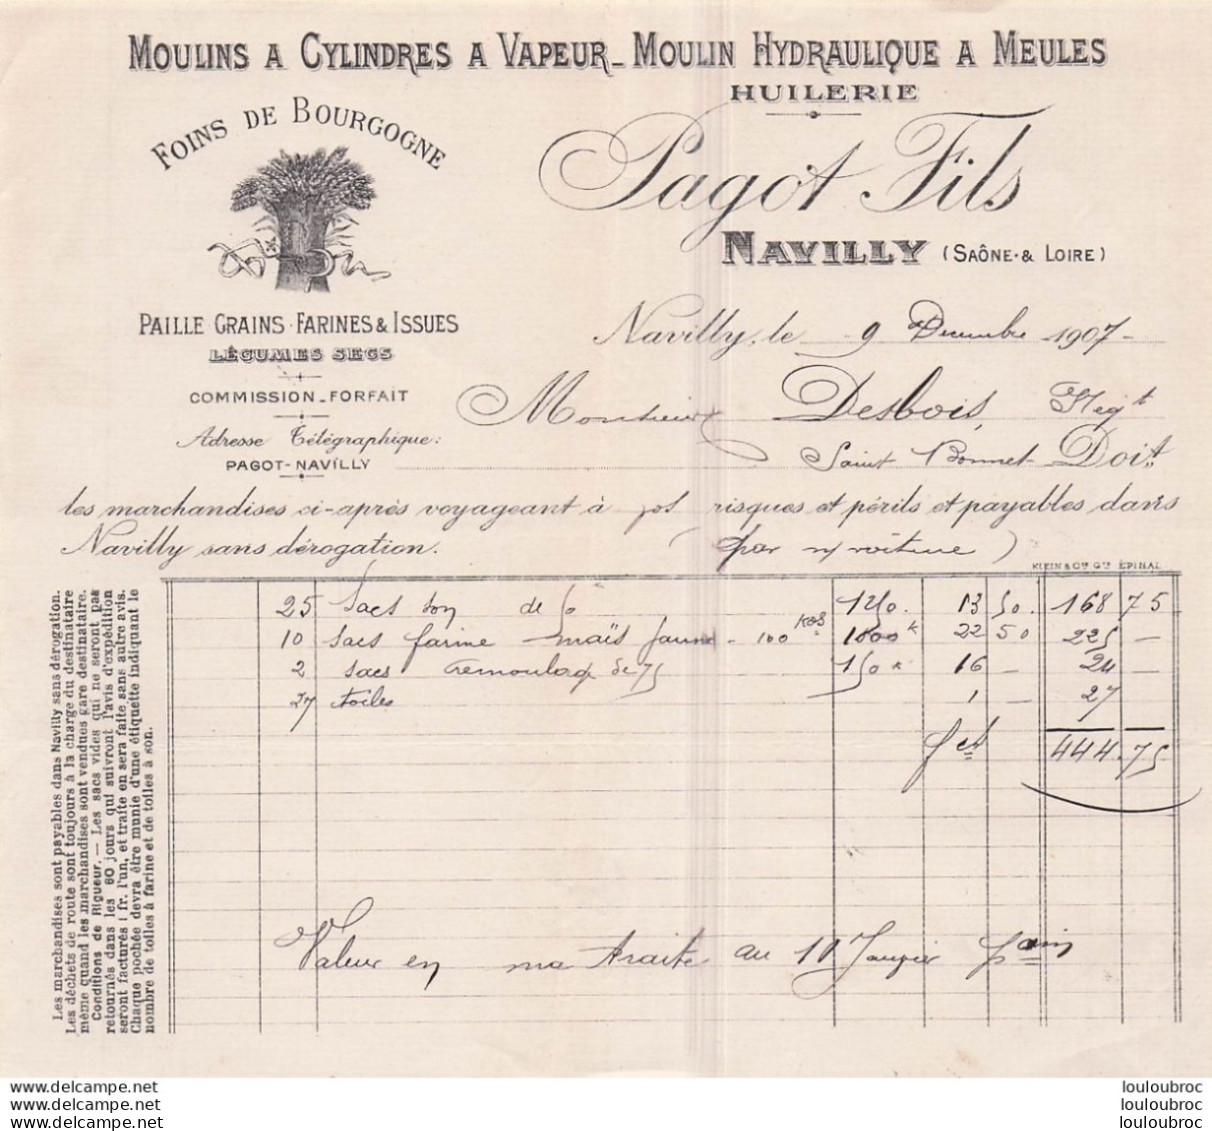 MOULINS A CYLINDRES A VAPEUR_ MOULIN HYDRAULIQUE A MEULES
HUILERIE
FOINS DE BOURGOGNE
Pagot Fils
NAVILLY (SAÔNE-& LOIRE)
PAILLE GRAINS-FARINES & ISSUES
LÉGUMES SECS
COMMISSION_FORFAIT
Adresse Télégraphique:
PAGOT-NAVILLY
Navilly, le 9 Décembre 1907
Monsieur Desbois, Neg t
Saint Bonnet Doit
les marchandises ci-après voyageant à vos risques et périls et payables dans
Navilly sans dérogation. (par n/ voiture)
KLEIN & Cie Gdes ÉPINAL
25 Sacs son de 50 1250. 13 50 168 75
10 sacs farine maïs jaune - 100 kos 1000 k 22 50 225 —
2 sacs remoulage de 75 150 k 16 — 24 —
27 toiles 1 — 27
444.75
Valeur en ma traite au 10 Janvier
Les marchandises sont payables dans Navilly sans dérogation.
Les déchets de route sont toujours à la charge du destinataire
même quand les marchandises sont vendues gare destinataire.
Conditions de Rigueur. — Les sacs vides qui ne seront pas
retournés dans les 60 jours qui suivront l'avis d'expédition
seront facturés 1 fr. l'un, et traite en sera faite sans autre avis.
Chaque pochée devra être munie d'une étiquette indiquant le
nombre de toiles à farine et de toiles à son.
www.delcampe.net
www.delcampe.net
www.delcampe.net
louloubroc
louloubroc
louloubroc